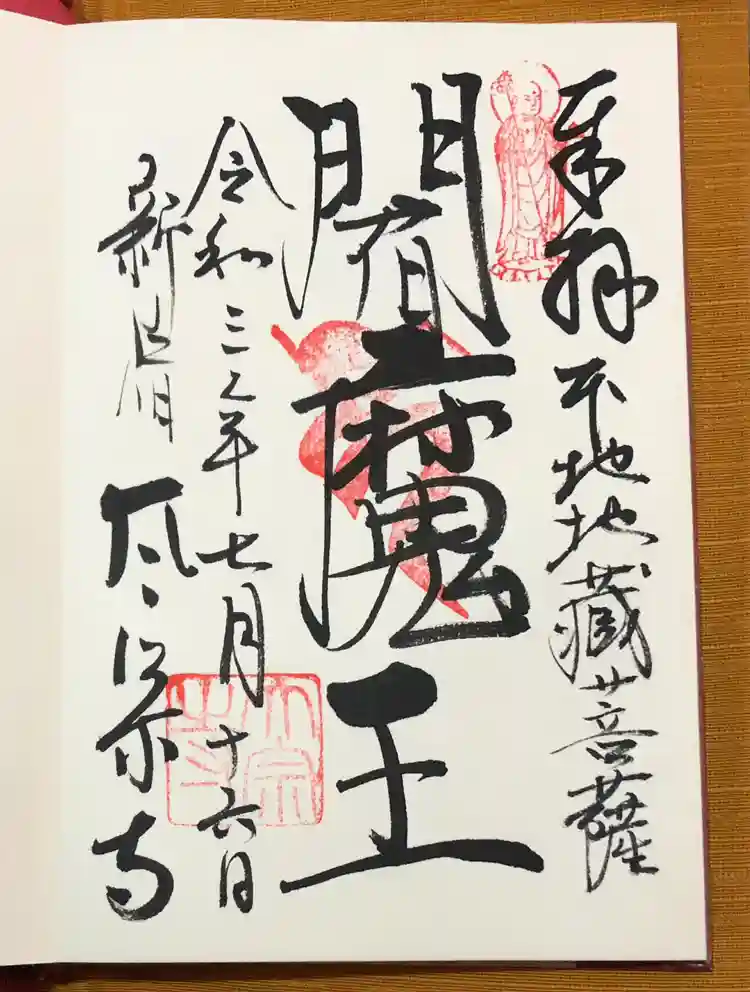 奉拝 本地地蔵菩薩
閻魔王
令和三年七月十六日
新宿 太宗寺